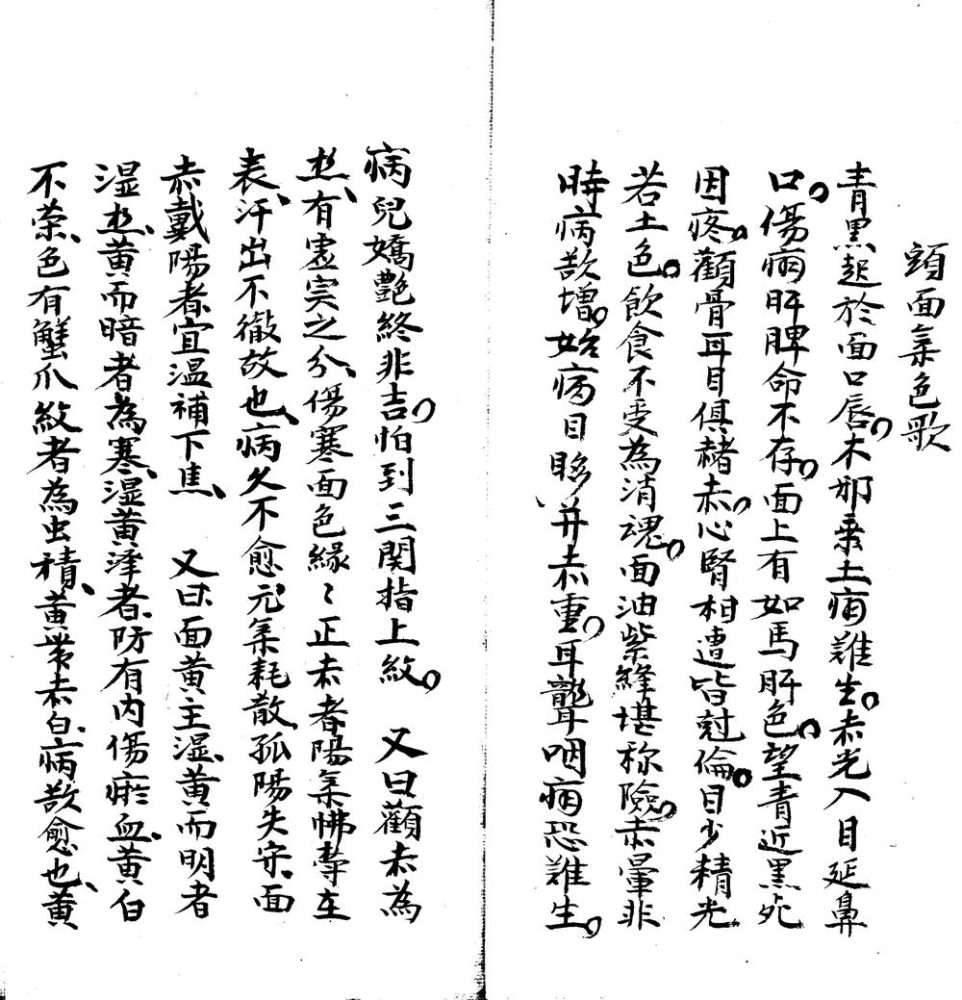 頭面氣色歌
青黑起於面口唇木邪乘土病難生赤光入目延鼻
口傷病肝脾命不存面上有如馬肝色望青近黑死
因疼顴骨耳目俱赭赤心腎相遭皆尅倫目少精光
若土色飲食不受為消魂面油紫縫堪称險赤暈非
時病欲增始病目眵并赤重耳聾咽病恐難生
病兒嬌艷終非吉怕到三関指上紋 又曰顴赤為
热有虚寔之分傷寒面色緣〻正赤者陽氣怫欝在
表汗出不徹故也病久不愈元氣耗散孤陽失守面
赤戴陽者宜温補下焦 又曰面黄主湿黄而明者
湿热黄而暗者為寒湿黄滓者防有内傷瘀血黄白
不荣色有蟹爪紋者為虫積黄帯赤白病欲愈也黄